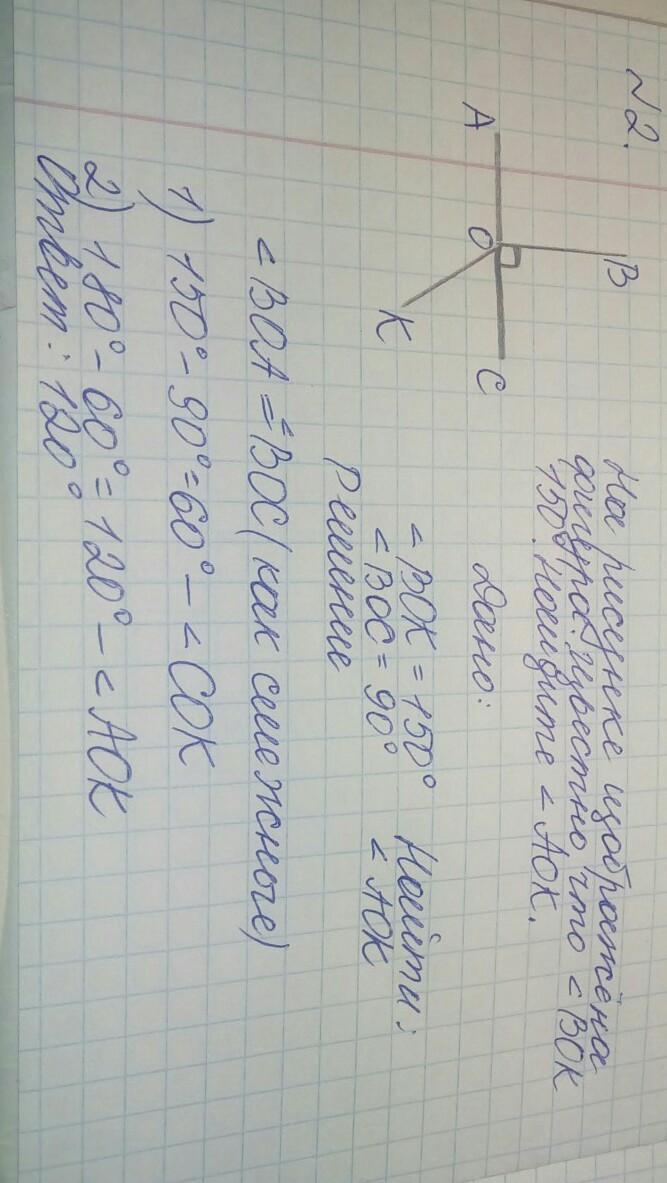 №2.
B
A
O
C
K
На рисунке изображёна
фигура. Известно что < BOK
150°. Найдите < AOK.
Дано:
< BOK = 150°
< BOC = 90°
Найти:
< AOK
Решение
< BOA = < BOC (как смежные)
1) 150° - 90° = 60° - < COK
2) 180° - 60° = 120° - < AOK
Ответ: 120°